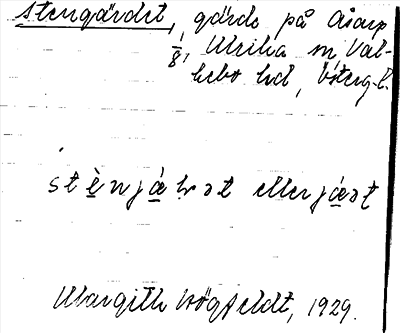 Stengärdet, gärde på Åsarp
1/8, Ulrika sn, Val-
kebo hd, Österg. l.
stènjá̱ƚət eller já̱ət
Margith Högfeldt, 1929.